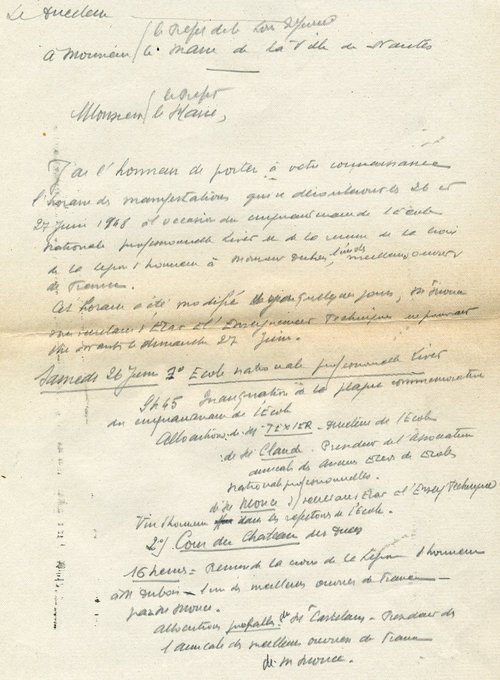 Le Directeur
le Préfet de la Loire Inférieure
A Monsieur le Maire de la Ville de Nantes
le Préfet
Monsieur le Maire,
J'ai l'honneur de porter à votre connaissance
l'horaire des manifestations qui se dérouleront les 26 et
27 Juin 1948 à l'occasion du cinquantenaire de l'école
Nationale professionnelle Livet et de la remise de la croix
de la Légion d'honneur à Monsieur Dubois, l'un des meilleurs ouvriers
de France.
Cet horaire a été modifié quelques jours, M. Morice
secrétaire d'Etat à l'Enseignement Technique ne pouvant
être à Nantes le dimanche 27 Juin.
Samedi 26 Juin 1º Ecole nationale professionnelle Livet
9h45 Inauguration de la plaque commémorative
du cinquantenaire de l'Ecole
Allocutions: de M. TEXIER - directeur de l'Ecole
de M. Claude - Président de l'Association
amicale des anciens Elèves des Ecoles
Nationales professionnelles.
de M. Morice s/secrétaire d'Etat à l'Enseigt Technique
Vin d'honneur dans les réfectoires de l'école.
2º/ Cour du Chateau des Ducs
16 heures = Remise de la croix de la Légion d'honneur
à M. Dubois - l'un des meilleurs ouvriers de France -
par M. Morice.
allocutions de M. - Président de
l'amicale des meilleurs ouvriers de France
de M. Morice.